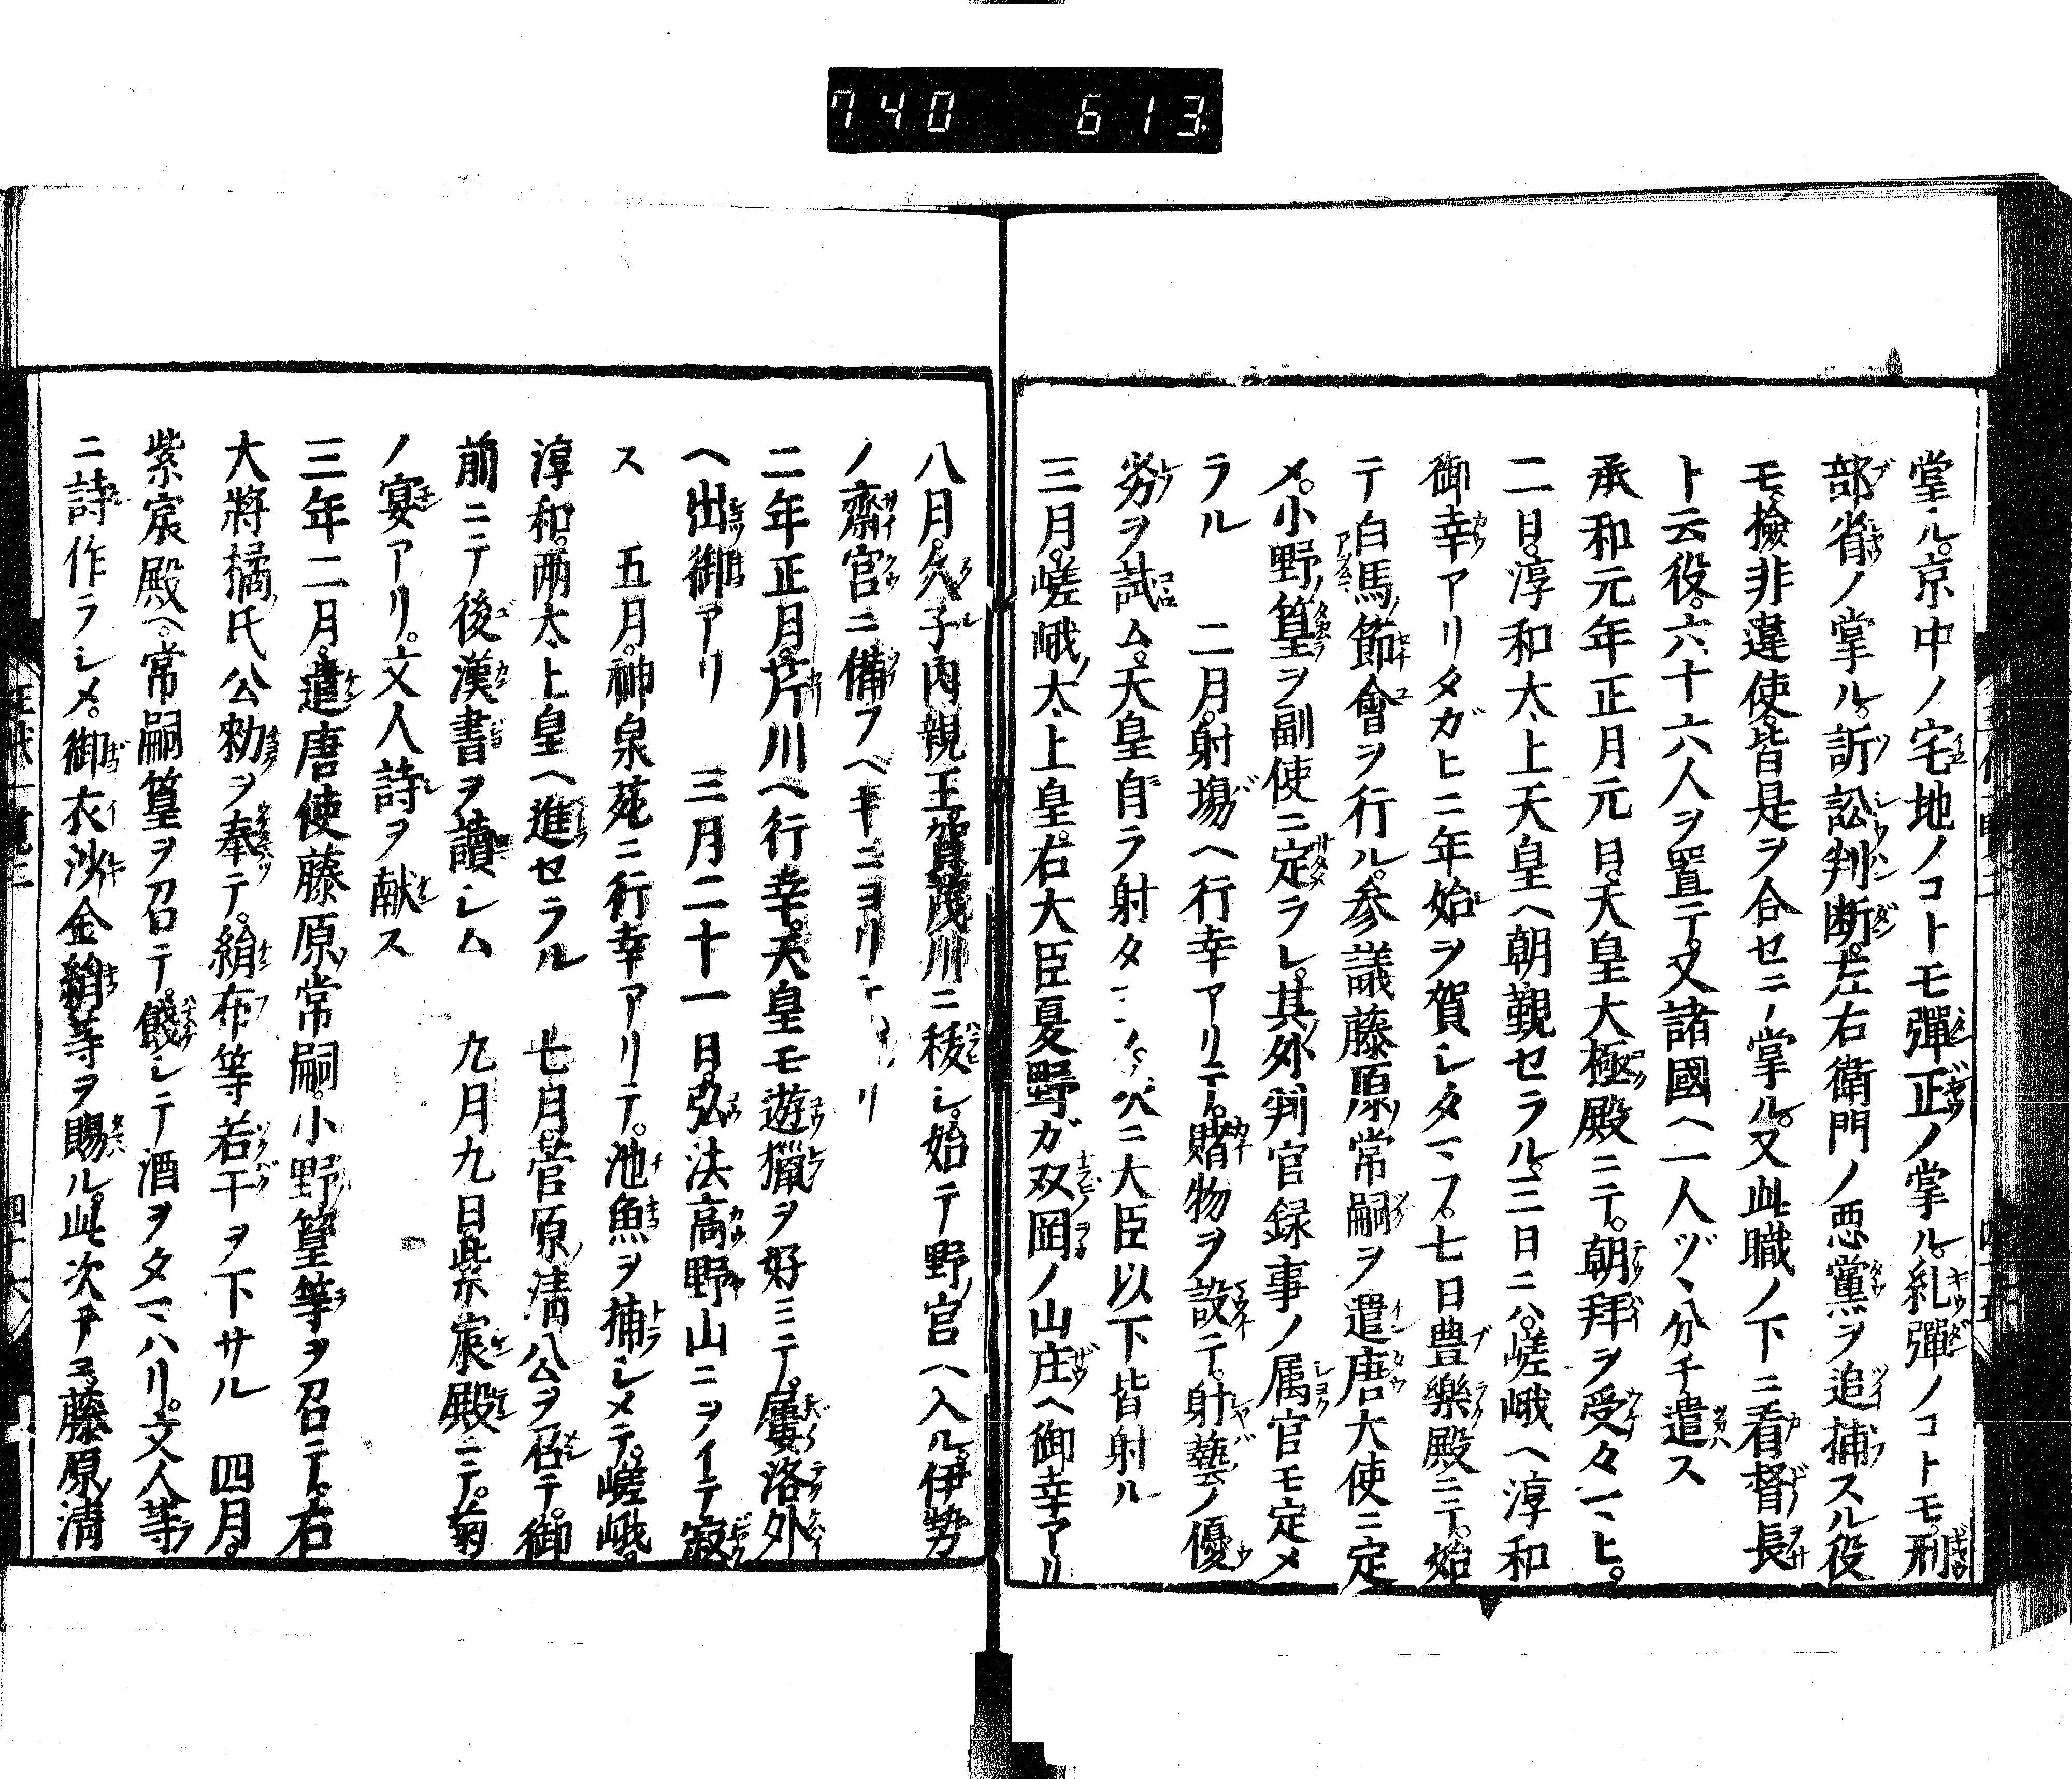 740 613
掌ル。京中ノ宅地ノコトモ彈正ノ掌ル。糺彈ノコトモ。刑
部省ノ掌ル。訢訟判断。左右衛門ノ悪黨ヲ追捕スル役
モ。撿非違使。皆是ヲ合セニノ掌ル。又此職ノ下ニ看督長
ト云役。六十六人ヲ置テ。又諸國ヘ一人ヅヽ分チ遣ス
承和元年正月元日。天皇大極殿ニテ。朝拜ヲ受タマヒ。
二日。淳和太上天皇ヘ朝覲セラル。三日ニハ。嵯峨ヘ淳和
御幸アリタガヒニ年始ヲ賀シタマフ。七日豊樂殿ニテ。始
テ白馬節會ヲ行ル。参議藤原常嗣ヲ遣唐大使ニ定
メ。小野篁ヲ副使ニ定ラレ。其外判官録事ノ属官モ定メ
ラル 二月。射塲ヘ行幸アリテ。賭物ヲ設テ。射藝ノ優
劣ヲ試ム。天皇自ラ射タ 次ニ大臣以下皆射ル
三月。嵯峨太上皇。右大臣夏野ガ双岡ノ山庄ヘ御幸アリ
八月。久子内親王。賀茂川ニ秡シ。始テ野宮ヘ入ル。伊勢
ノ齋宮ニ備フヘキニヨリテ リ
二年正月。芹川ヘ行幸。天皇モ遊獵ヲ好ミテ。屢洛外
ヘ出御アリ 三月二十一日。弘法高野山ニヲイテ寂
ス 五月。神泉苑ニ行幸アリテ。池魚ヲ捕シメテ。嵯峨。
淳和。両太上皇ヘ進セラル 七月。菅原清公ヲ召テ。御
前ニテ後漢書ヲ讀シム 九月九日。紫宸殿ニテ。菊
ノ宴アリ。文人詩ヲ献ス
三年二月。遣唐使藤原常嗣。小野篁等ヲ召テ。右
大將橘氏公勅ヲ奉テ。絹布等若干ヲ下サル 四月。
紫宸殿ヘ。常嗣篁ヲ召テ。餞シテ酒ヲタマハリ。文人等
ニ詩作ラシメ。御衣沙金絹等ヲ賜ル。此次テヨ。藤原清